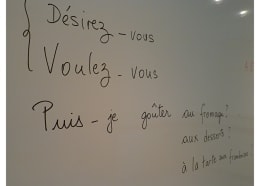 Désirez - vous
Voulez - vous
Puis - je goûter au fromage?
aux desserts?
à la tarte aux